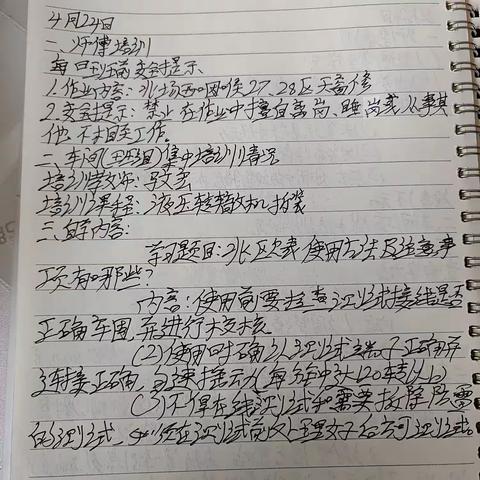 4月24日
一、师傅培训
每日班前安全提示
1.作业内容:北场西咽喉27.28区天窗修
2.安全提示:禁止在作业中擅自离岗、睡岗或从事其
他不相关工作。
二、车间(班组)集中培训情况
培训教师:
培训课程:液压转辙机拆装
三、自学内容:
学习题目:兆欧表使用方法及注意事
项有哪些?
内容:使用前要检查测试接线是否
正确牢固,并进行校核
(2)使用时确认测试端子正确并
连接正确,匀速摇动(每分钟120转以上)
(3)不得在线测试和需要拆除防雷
的测试,必须在测试前处理好后方可测试。